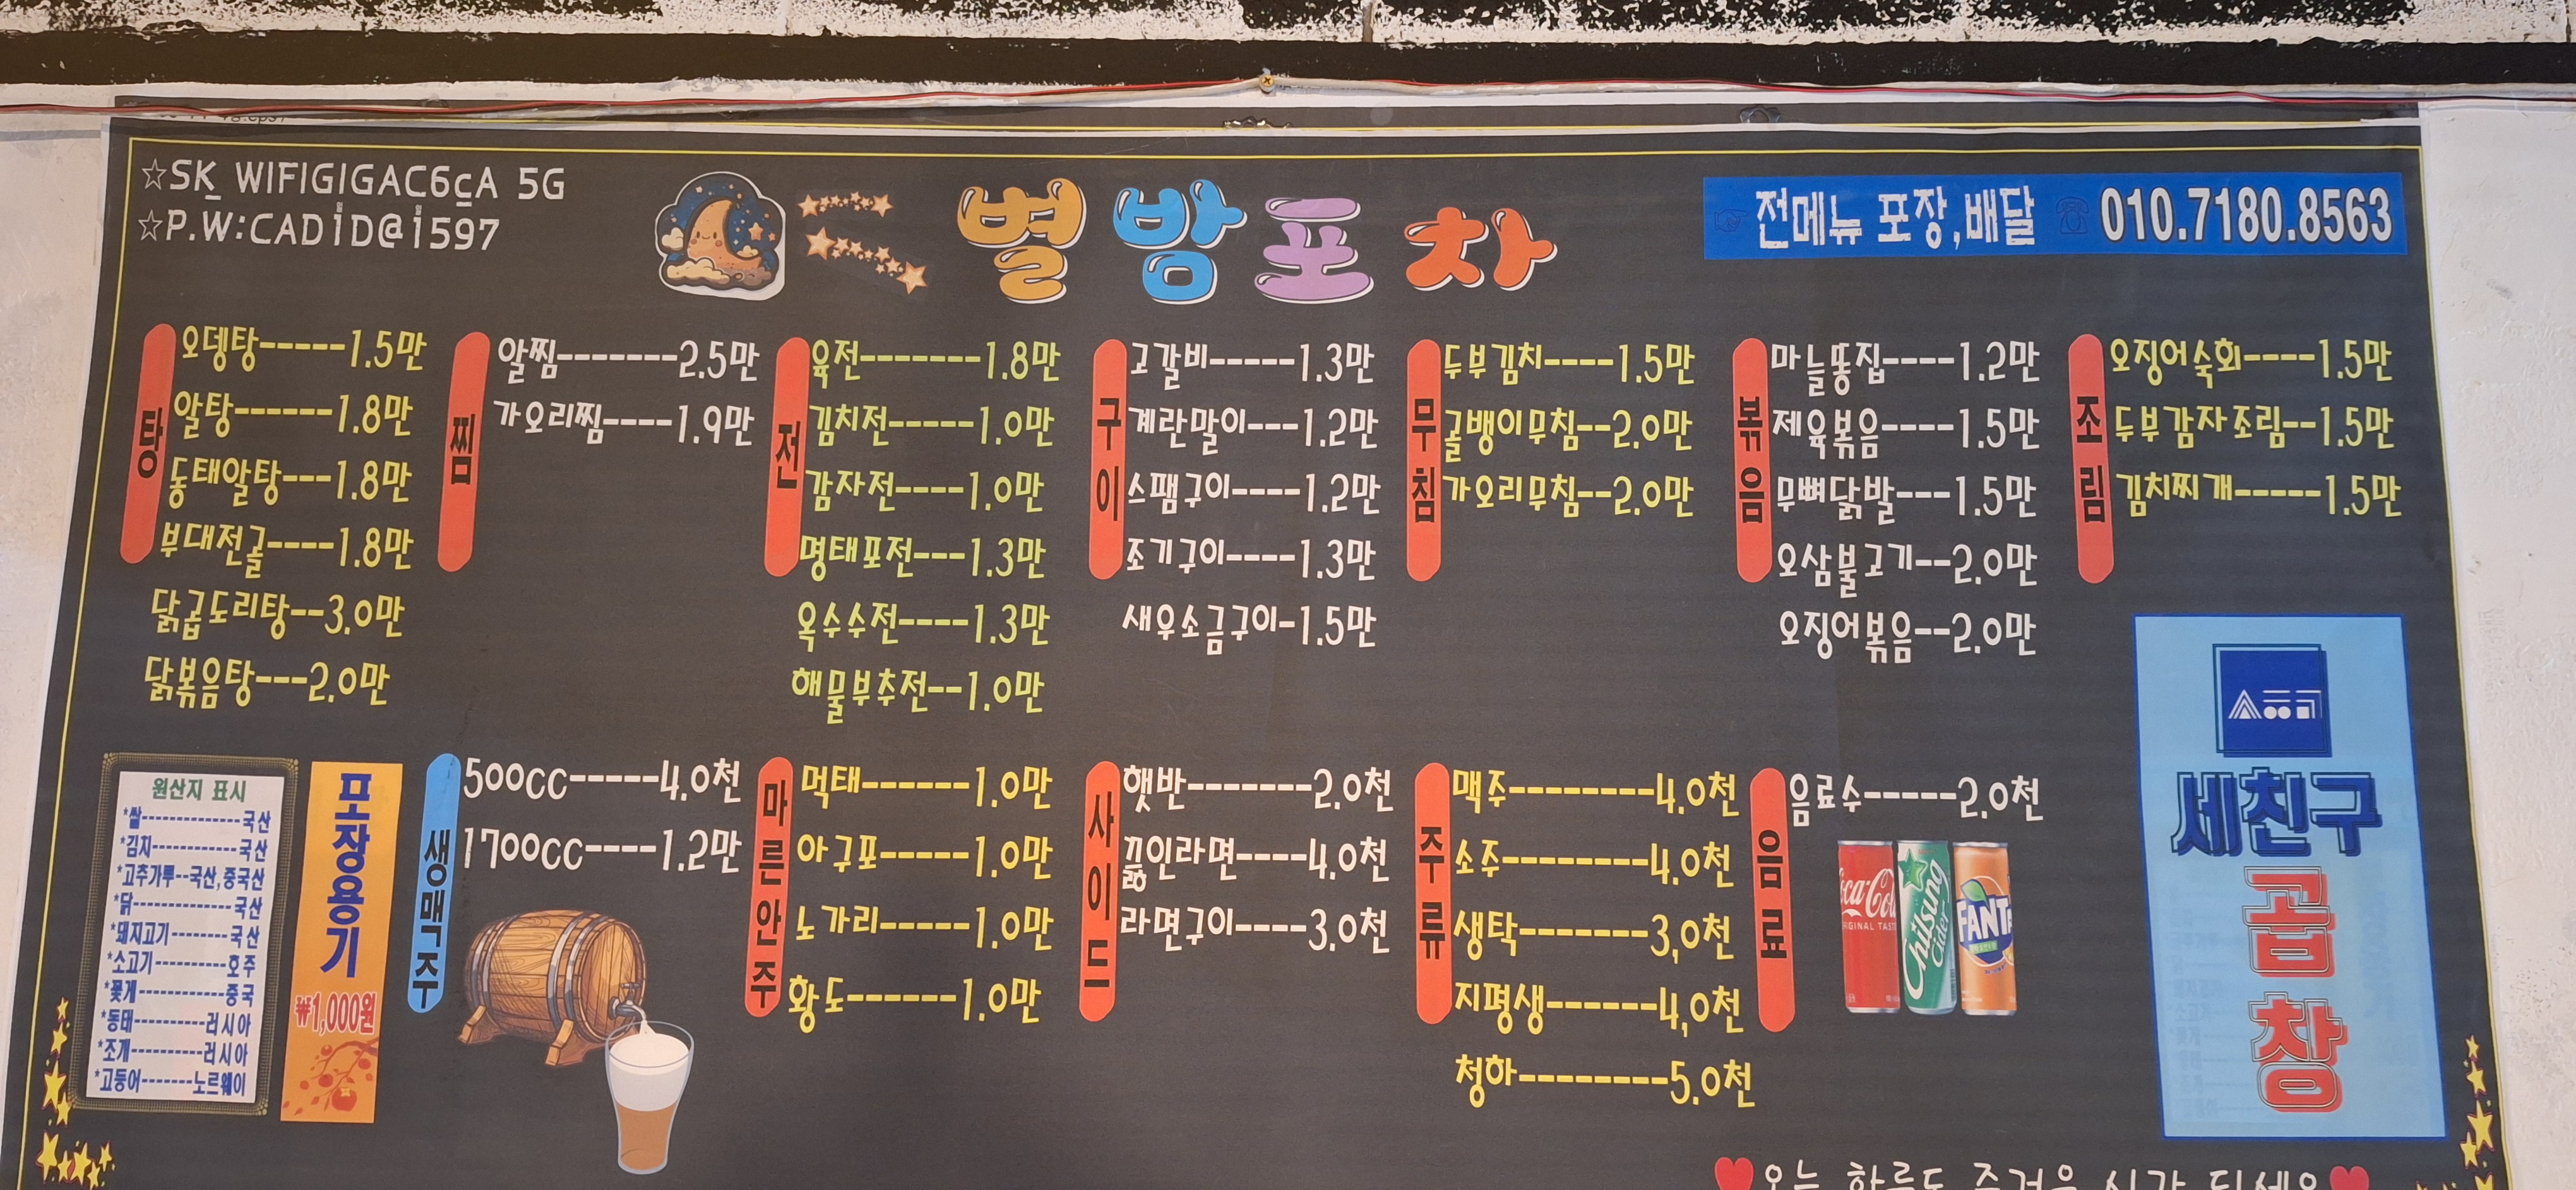 ☆SK WIFIGIGAC6cA 5G
☆P.W:CAD1D@1597
별밤포차
전메뉴 포장,배달 ☏ 010.7180.8563
탕
오뎅탕-----1.5만
알탕------1.8만
동태알탕---1.8만
부대전골----1.8만
닭곱도리탕--3.0만
닭볶음탕---2.0만
찜
알찜-------2.5만
가오리찜----1.9만
전
육전-------1.8만
김치전-----1.0만
감자전----1.0만
명태포전---1.3만
옥수수전----1.3만
해물부추전--1.0만
구이
고갈비-----1.3만
계란말이---1.2만
스팸구이----1.2만
조기구이----1.3만
새우소금구이-1.5만
무침
두부김치----1.5만
골뱅이무침--2.0만
가오리무침--2.0만
볶음
마늘똥집----1.2만
제육볶음----1.5만
무뼈닭발---1.5만
오삼불고기--2.0만
오징어볶음--2.0만
조림
오징어숙회----1.5만
두부감자조림--1.5만
김치찌개-----1.5만
원산지 표시
*쌀--------------국산
*김치------------국산
*고추가루--국산,중국산
*닭--------------국산
*돼지고기--------국산
*소고기----------호주
*꽃게------------중국
*동태-----------러시아
*조개-----------러시아
*고등어-------노르웨이
포장용기
₩1,000원
생맥주
500cc-----4.0천
1700cc----1.2만
마른안주
먹태-------1.0만
아구포-----1.0만
노가리-----1.0만
황도------1.0만
사이드
햇반-------2.0천
끓인라면----4.0천
라면구이----3.0천
주류
맥주--------4.0천
소주--------4.0천
생탁-------3,0천
지평생------4,0천
청하--------5.0천
음료
음료수-----2.0천
Coca-Cola
ORIGINAL TASTE
Chilsung
Cider
FANTA
세친구
곱창